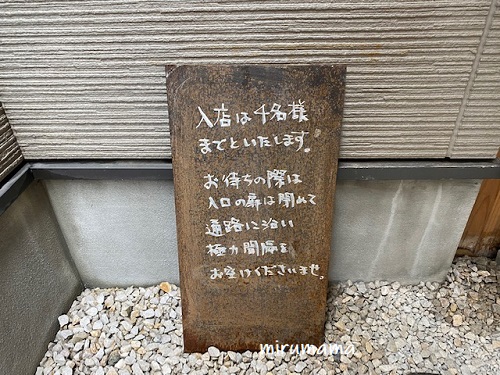 入店は4名様
までといたします。
お待ちの際は
入口の扉は閉めて
通路に沿い
極力間隔を
お空けくださいませ。
mirumama